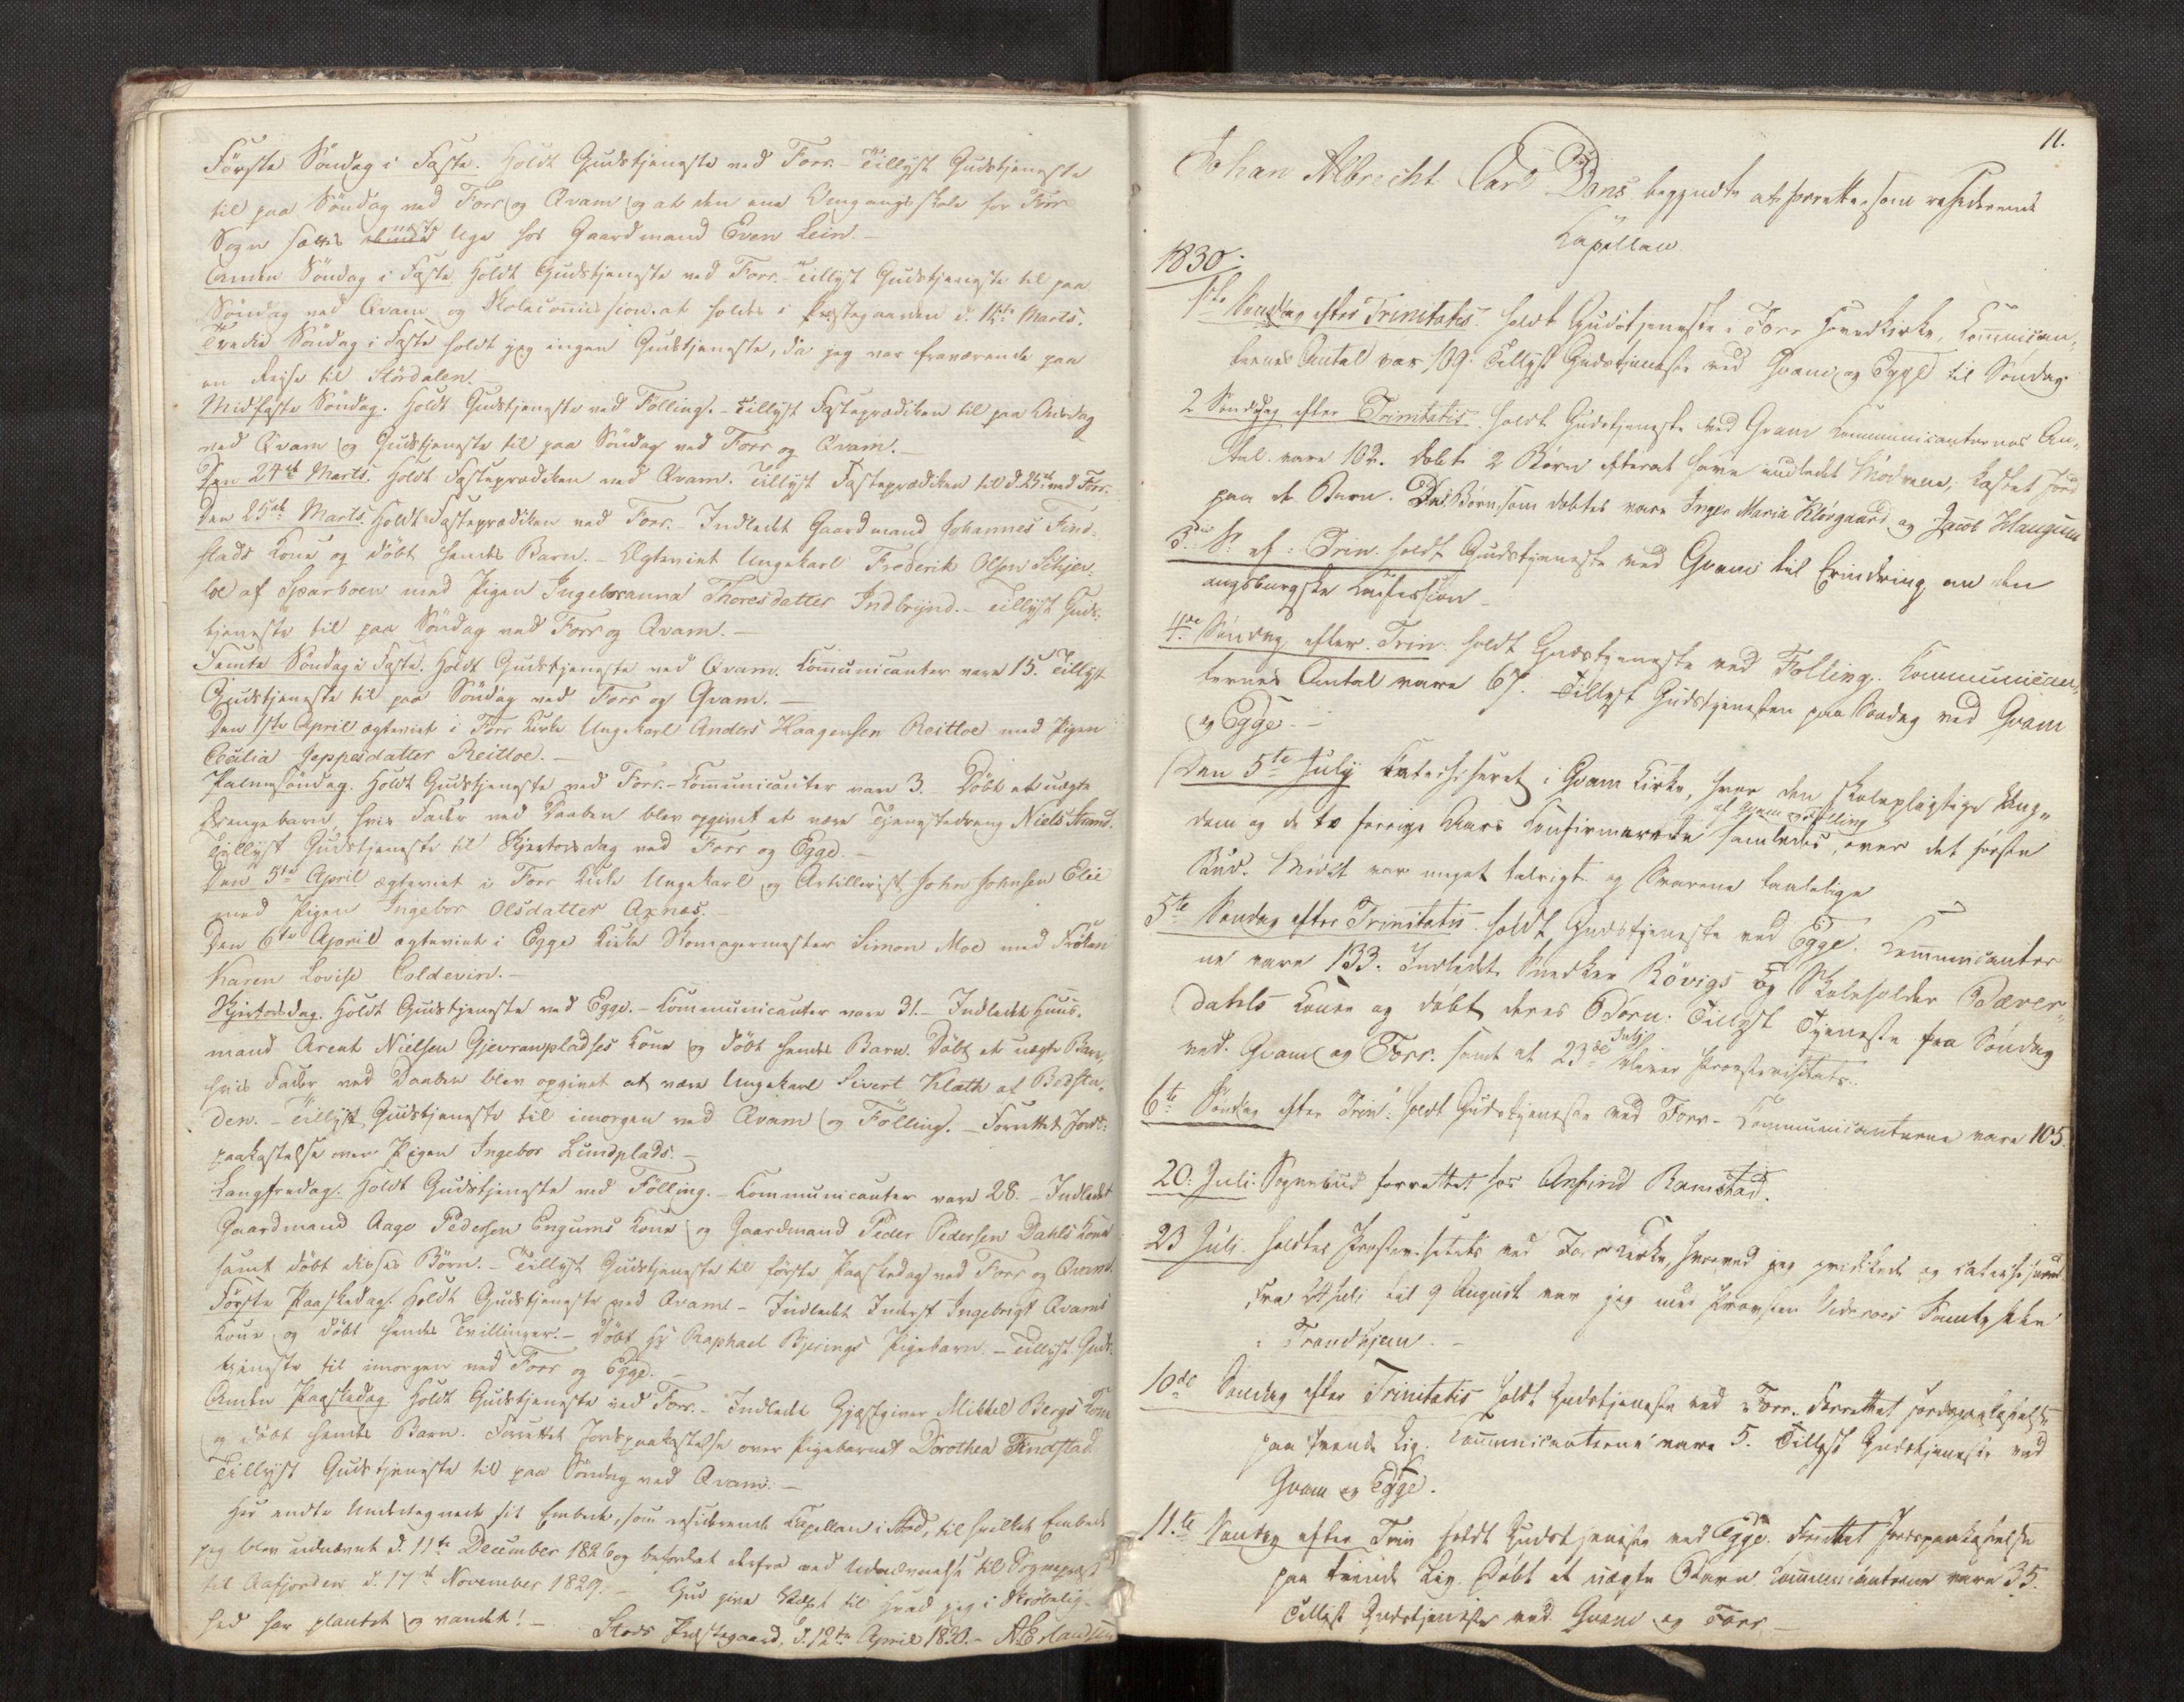 Förste Söndag i Faste. Holdt Gudstjeneste ved Forr. - Tillyst Gudstjeneste
til paa Söndag ved Forr og Qvam og at den ene Omgangsskole for Forr
Sogn sættes næste Uge hos Gaardmand Even Lein. -
Anden Söndag i Faste holdt Gudstjeneste ved Forr. - Tillyst Gudstjeneste til paa
Söndag ved Qvam og Skolecommission at holdes i Præstegaarden d. Marts.
Tredie Söndag i Faste holdt jeg ingen Gudstjeneste, da jeg var fraværende paa
en Rejse til Stördalen.
Midfaste Söndag. Holdt Gudstjeneste ved Fölling. - Tillyst Fasteprædiken til paa Onsdag
ved Qvam og Gudstjeneste til paa Söndag ved Forr og Qvam. -
Den 24de Marts. Holdt Fasteprædiken ved Qvam. Tillyst Fasteprædiken til d. 25de ved Forr.
Den 25de Marts. Holdt Fasteprædiken ved Forr. - Indledt Gaardmand Johannes Find-
stads Kone og döbt hendes Barn. - Ægteviet Ungekarl Frederik Olsen Schjer-
loe af Sparboen med Pigen Ingeboranna Thoresdatter Indbrynd. - Tillyst Guds-
tjeneste til paa Söndag ved Forr og Qvam. -
Femte Söndag i Faste. Holdt Gudstjeneste ved Qvam. Communicanter vare 15. Tillyst
Gudstjeneste til paa Söndag ved Forr og Qvam. -
Den 1ste April ægteviet i Forr Kirke Ungekarl Anders Haagensen Reitloe med Pigen
Cecilia Jeppesdatter Reitloe. -
Palmesöndag. Holdt Gudstjeneste ved Forr. - Communicanter vare 3. Döbt et uægte
Drengebarn, hvis Fader ved Daaben blev opgivet at være Tjenestedreng Niels Strand.
Tillyst Gudstjeneste til Skjertorsdag ved Forr og Egge. -
Den 5te April ægteviet i Forr Kirke Ungekarl og Artillerist John Johnsen Elie
med Pigen Ingebor Olsdatter Axnæs. -
Den 6te April ægteviet i Egge Kirke Skomagermester Simon Moe med Fröken
Karen Lovise Coldevin. -
Skjertorsdag. Holdt Gudstjeneste ved Egge. - Communicanter vare 31. - Indledt Huus-
mand Arent Nielsen Gjevranpladses Kone og döbt hendes Barn. Döbt et uægte Barn,
hvis Fader ved Daaben blev opgivet at være Ungekarl Sivert Klæth af Beds-
den. - Tillyst Gudstjeneste til imorgen ved Qvam og Fölling. - Forrettet Jords-
paakastelse over Pigen Ingebor Lundplads. -
Langfredag. Holdt Gudstjeneste ved Fölling. - Communicanter vare 28. - Indledt
Gaardmand Aage Pedersen Engums Kone og Gaardmand Peder Pedersen Dahls Kone
samt döbt disses Börn. - Tillyst Gudstjeneste til förste Paaskedag ved Forr og Qvam.
Förste Paaskedag. Holdt Gudstjeneste ved Qvam. - Indledt Inderst Ingebrigt Qvams
Kone og döbt hendes Tvillinger. - Döbt Raphael Bjerings Pigebarn. - Tillyst Guds-
tjeneste til imorgen ved Forr og Egge. -
Anden Paaskedag. Holdt Gudstjeneste ved Forr. - Indledt Gjæstgiver Mikkel Bergs Kone
og döbt hendes Barn. Forrettet Jordspaakastelse over Pigebarnet Dorothea Findstad.
Tillyst Gudstjeneste til paa Söndag ved Qvam. -
Her endte Undertegnede sit Embede, som residerende Capellan i Stod, til hvilket Embede
jeg blev udnævnt d. 11te December 1826 og befordret derfra ved Udnævnelse til Sognepræst
til Aafjorden d. 17de November 1829. - Gud give Væxt til hvad jeg i Skröbelig-
hed har plantet og vandet! - Stods Præstegaard, d. 12te April 1830. - A. Erlandsen
11.
Johan Albrecht Carl Dons begyndte at forrette som residerende
Kapellan
1830.
1ste Søndag efter Trinitatis. holdt Gudstjeneste i Forr Hovedkirke, Communican-
ternes Antal var 109. Tillyst Gudstjeneste ved Qvam og Egge til Søndag
2 Søndag efter Trinitatis. holdt Gudstjeneste ved Qvam Communicanternes An-
tal vare 102. døbt 2 Børn efterat have indledt Mødrene, kastet Jord
paa et Barn. De Børn som døbtes vare Inger Maria Klosgaard og Jacob Haugum
3die S. ef: Trin. holdt Gudstjeneste ved Qvam til Erindring om den
augsburgske Confession -
4de Søndag efter Trin: holdt Gudstjeneste ved Følling. Kommunican-
ternes Antal vare 67. Tillyst Gudstjenesten paa Søndag ved Qvam
og Egge. -
Den 5te July Catechiseret i Qvam Kirke, hvor den skolepligtige Ung-
dom og de to forrige Aars Confirmerede af Qvam og Følling samledes, over det første
Bud. Mødet var meget talrigt og Svarene taalelige
5te Søndag efter Trinitatis. holdt Gudstjeneste ved Egge. Communicanter
ne vare 133. Indledt Snedker Rövigs og Skoleholder Væver-
dahls Koner og døbt deres Børn: Tillyst Tjeneste paa Søndag
ved Qvam og Forr. samt at 23de July bliver Provstevisitats.
6te Søndag efter Trin: holdt Gudstjeneste ved Forr - Communicanterne vare 105
20. Juli. Sognebud forrettet hos Anfind Ramstad.
23 Juli. holdtes Provstevisitats ved Forr Kirke, hvorved jeg prædikede og catechiserede
Fra 24 Juli til 9 August var jeg med Provsten Samtykke
i Trondhjem. -
10de Søndag efter Trinitatis holdt Gudstjeneste ved Forr. Forrettet Jordspaakastelse
paa tvende Lig. Communicanterne vare 5. Tillyst Gudstjeneste ved
Qvam og Egge.
11.te Søndag efter Trin holdt Gudstjeneste ved Egge. Forrettet Jordspaakastelse
paa tvende Lig. Døbt et uægte Barn. Communicanterne vare 35.
Tillyst Gudstjeneste ved Qvam og Forr -